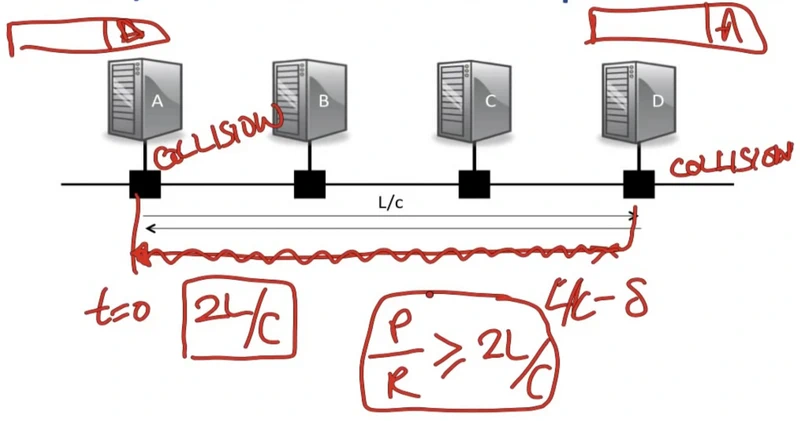 D
A
A
B
C
D
COLLISION
COLLISION
L/c
t=0
2L/C
P/R ≥ 2L/C
L/C - δ